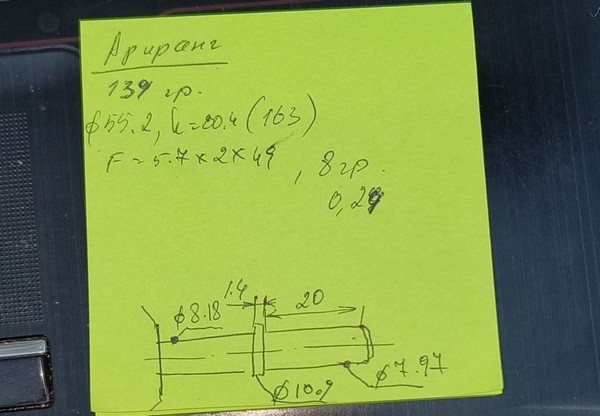 Ариранг
139 гр.
φ55.2, h=80.4 (163)
F = 5.7 × 2 × 49 , 8 гр.
0,29
1.4
20
φ8.18
φ7.97
φ10.9